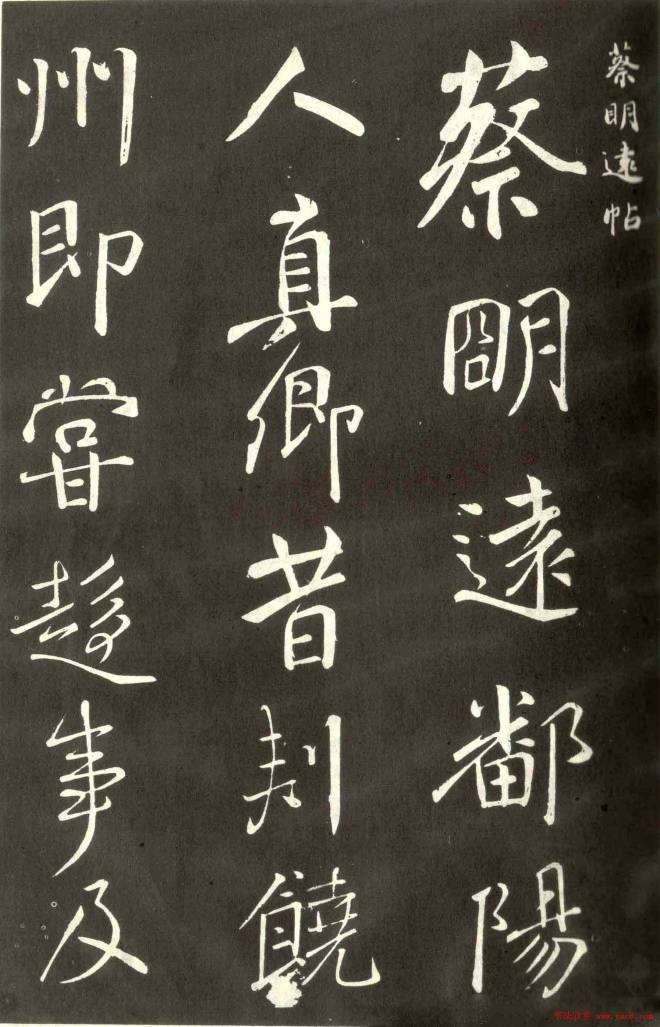 蔡明遠帖
蔡明遠鄱陽
人真卿昔刺饒
州即嘗趨事及